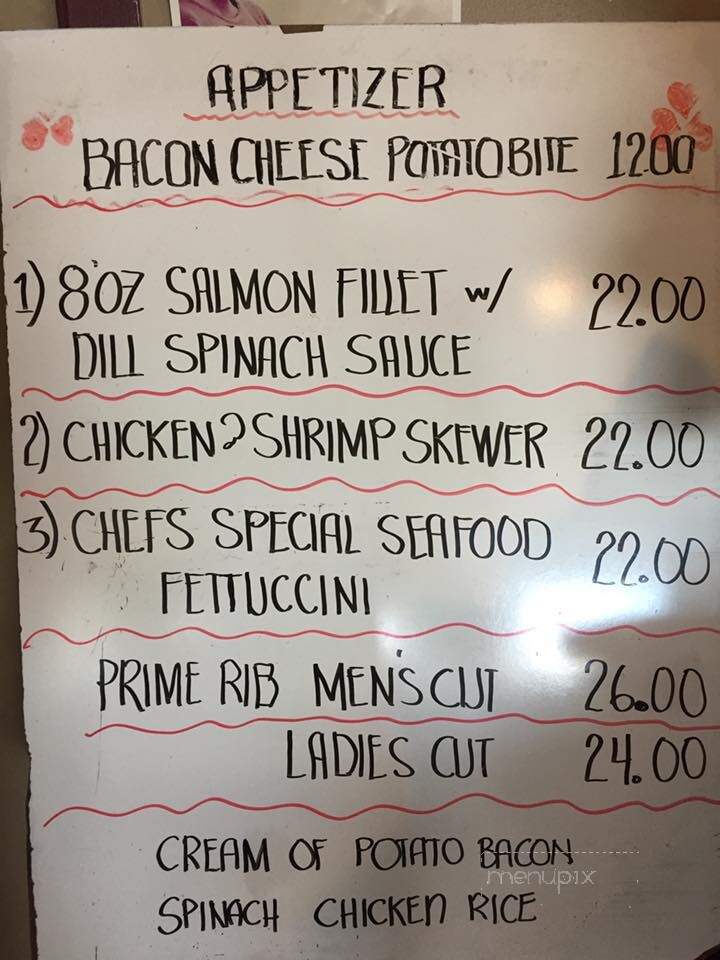 APPETIZER
BACON CHEESE POTATO BITE 12.00
1) 8'OZ SALMON FILLET w/ 22.00
DILL SPINACH SAUCE
2) CHICKEN & SHRIMP SKEWER 22.00
3) CHEFS SPECIAL SEAFOOD 22.00
FETTUCCINI
PRIME RIB MEN'S CUT 26.00
LADIES CUT 24.00
CREAM OF POTATO BACON
menupix
SPINACH CHICKEN RICE